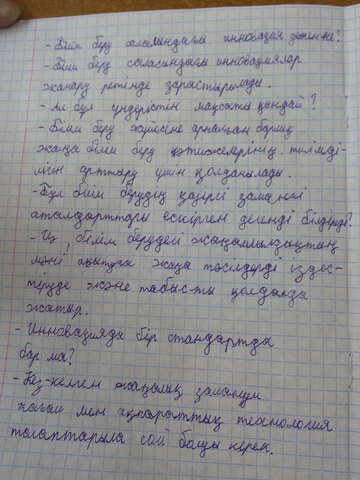 - Білім беру саласындағы инновация дегеніміз не?
- Білім беру саласындағы инновациялар
жаңару ретінде қарастырылады.
- Ал бұл үндерістің мақсаты қандай?
- Білім беру жүйесіне арналған барлық
жаңа білім беру қәтижелерінің тиімді-
лігін арттыру үшін қолданылады.
- Бұл білім берудің қазіргі заманғы
стандарттары ескірген дегенді білдіреді?
- Иә, білім берудегі жаңашылдықтың
мәні оқытуға жаңа тәсілдерді іздес-
тіруде және табысты қолдануда
жатыр.
- Инновацияда бір стандартта
бар ма?
- Кез-келген жаңалық заманауи
қоғам мен ақпараттық технология
талаптарыла сай болуы керек.